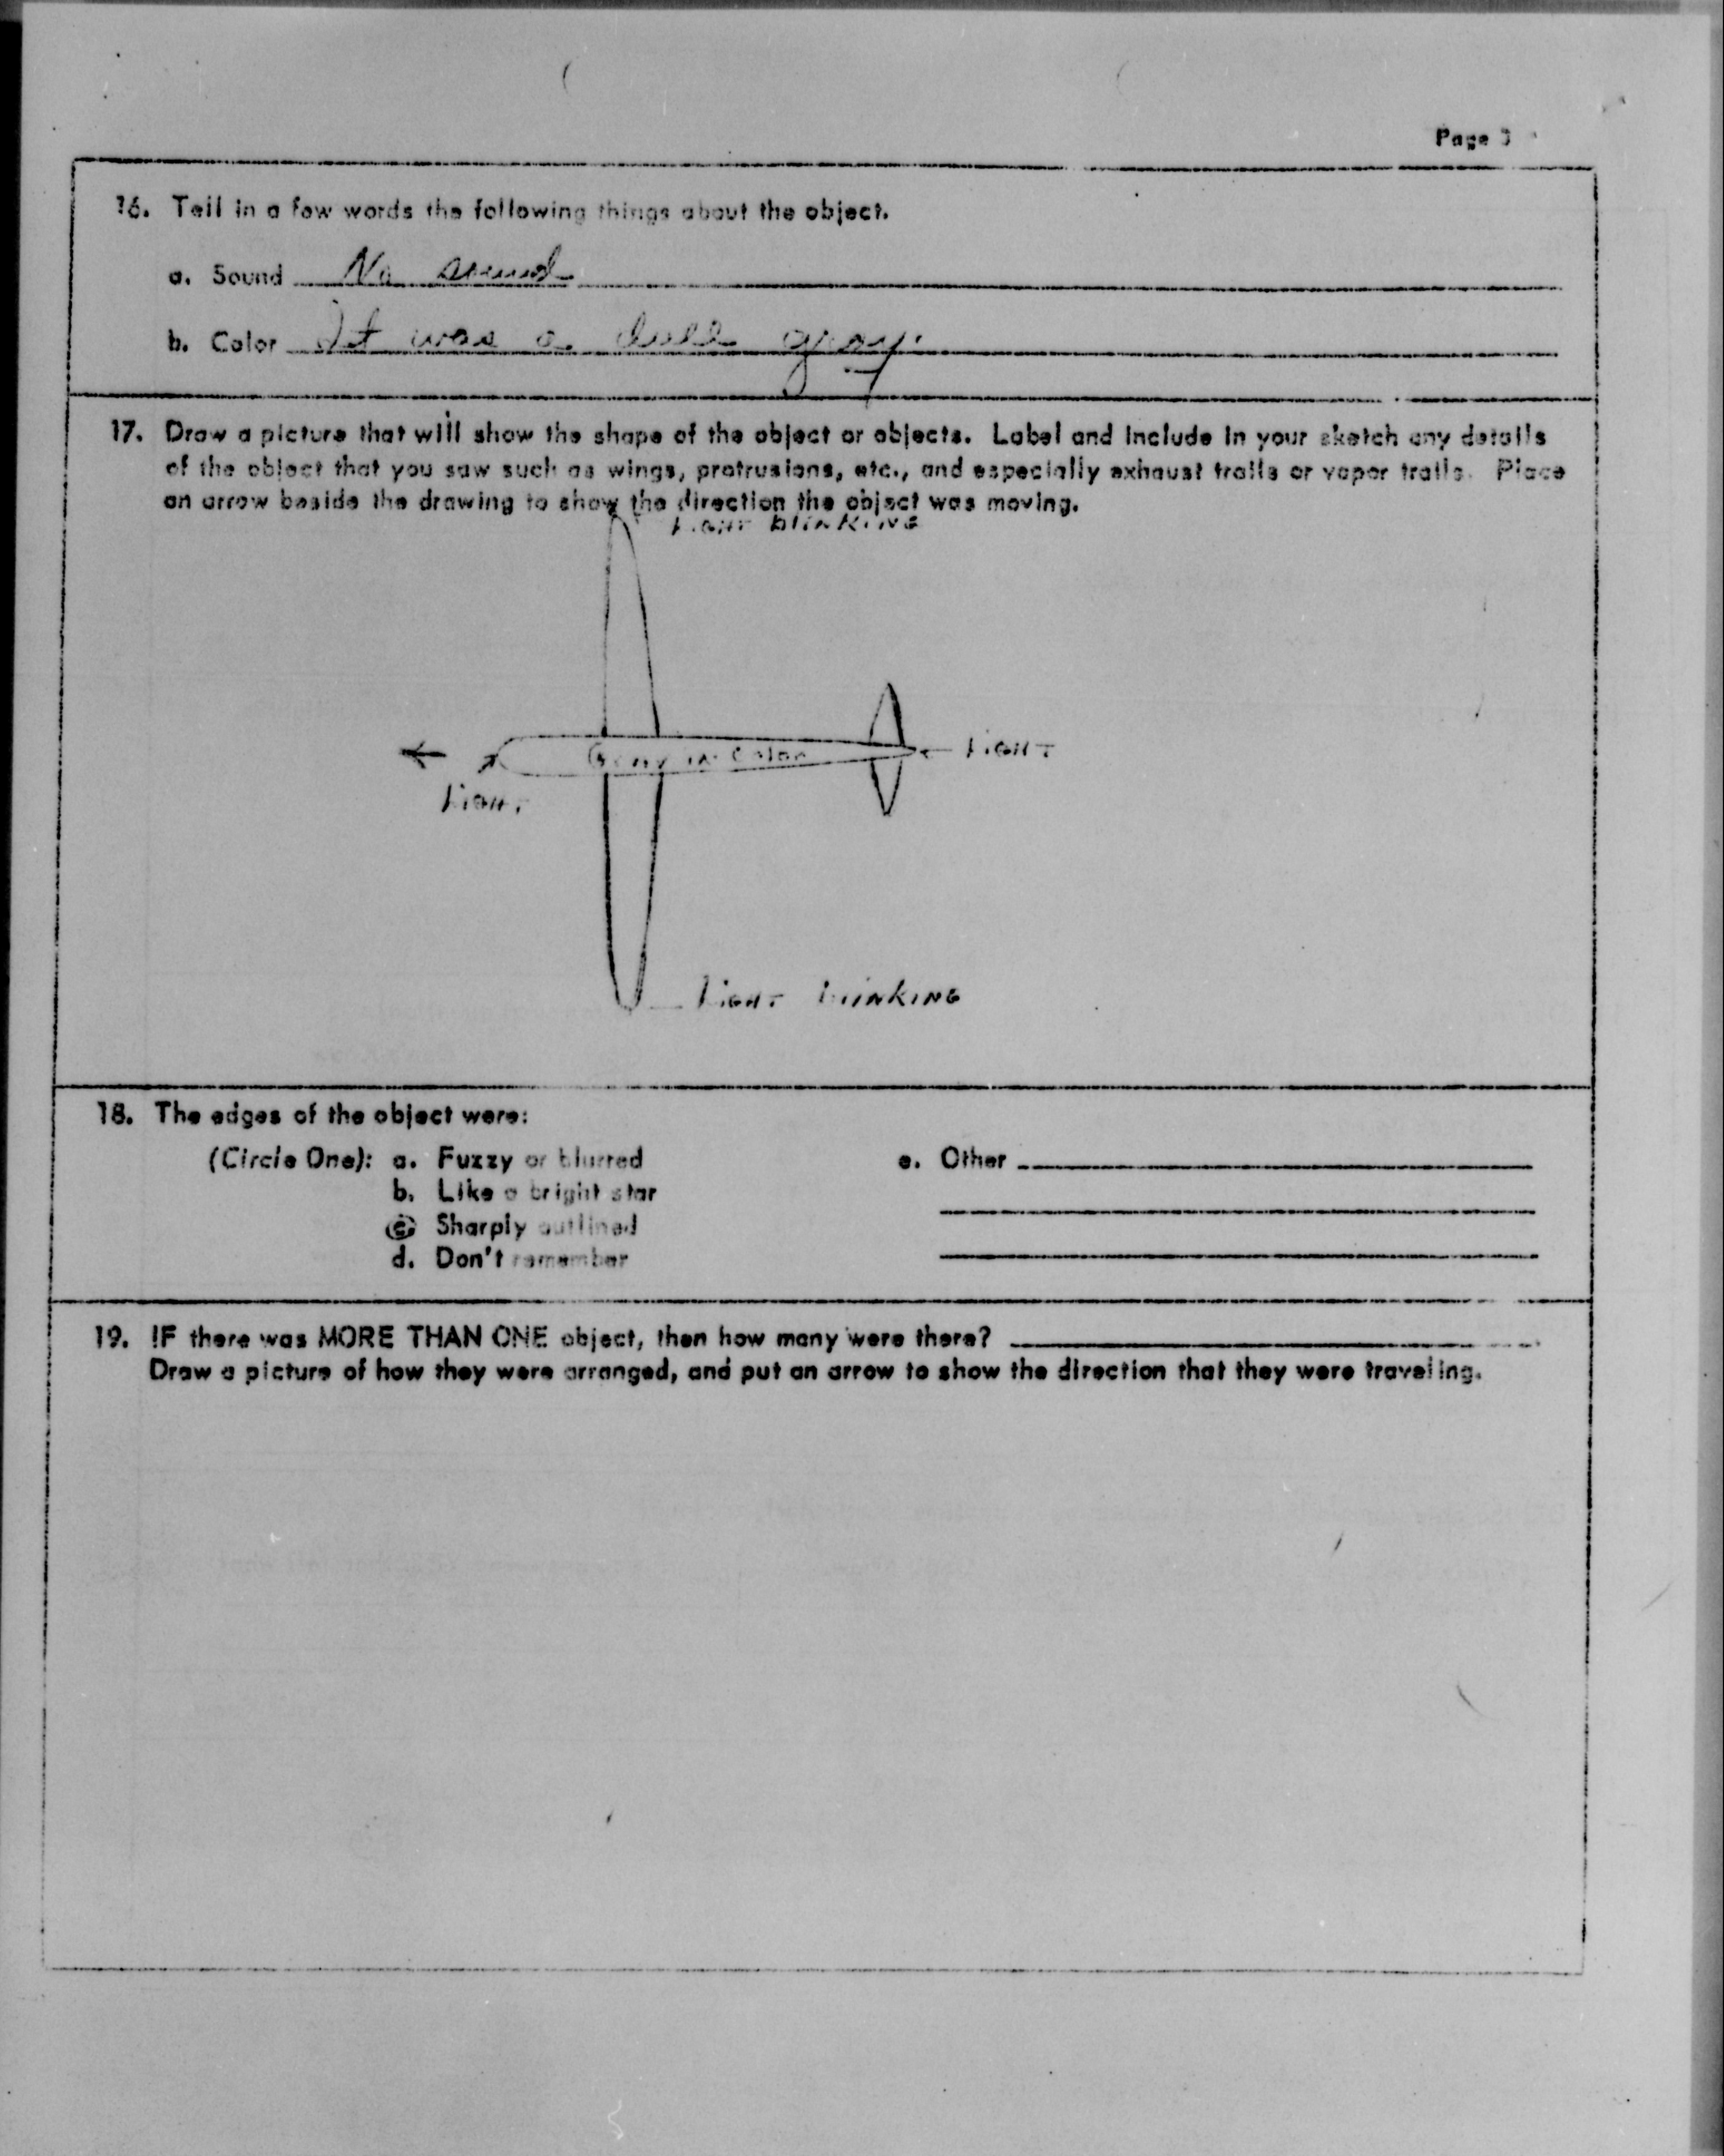 Page 3
16. Tell in a few words the following things about the object.
a. Sound No sound
b. Color It was a dull gray.
17. Draw a picture that will show the shape of the object or objects. Label and include in your sketch any details
of the object that you saw such as wings, protrusions, etc., and especially exhaust trails or vapor trails. Place
an arrow beside the drawing to show the direction the object was moving.
LIGHT BLINKING
GRAY IN COLOR
LIGHT
LIGHT
LIGHT BLINKING
18. The edges of the object were:
(Circle One): a. Fuzzy or blurred
e. Other
b. Like a bright star
c. Sharply outlined
d. Don't remember
19. IF there was MORE THAN ONE object, then how many were there?
Draw a picture of how they were arranged, and put an arrow to show the direction that they were traveling.